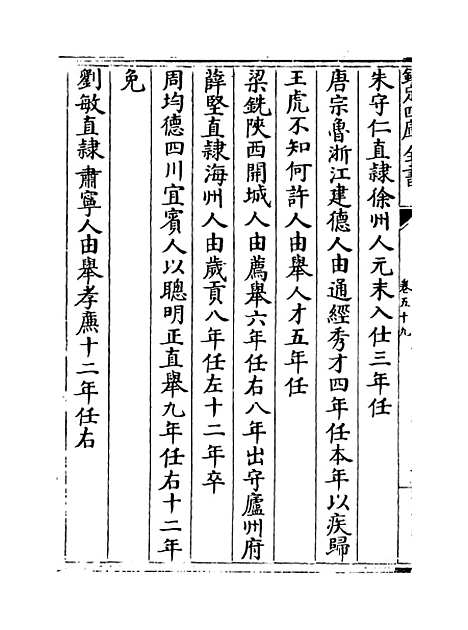 欽定四庫全書
卷五十九
朱守仁直隷徐州人元末入仕三年任
唐宗魯浙江建德人由通經秀才四年任本年以疾歸
王虎不知何許人由舉人才五年任
梁銑陜西開城人由薦舉六年任右八年出守廬州府
薛堅直隷海州人由歲貢八年任左十二年卒
周均德四川宜賓人以聰明正直舉九年任右十二年
免
劉敏直隷肅寧人由舉孝廉十二年任右